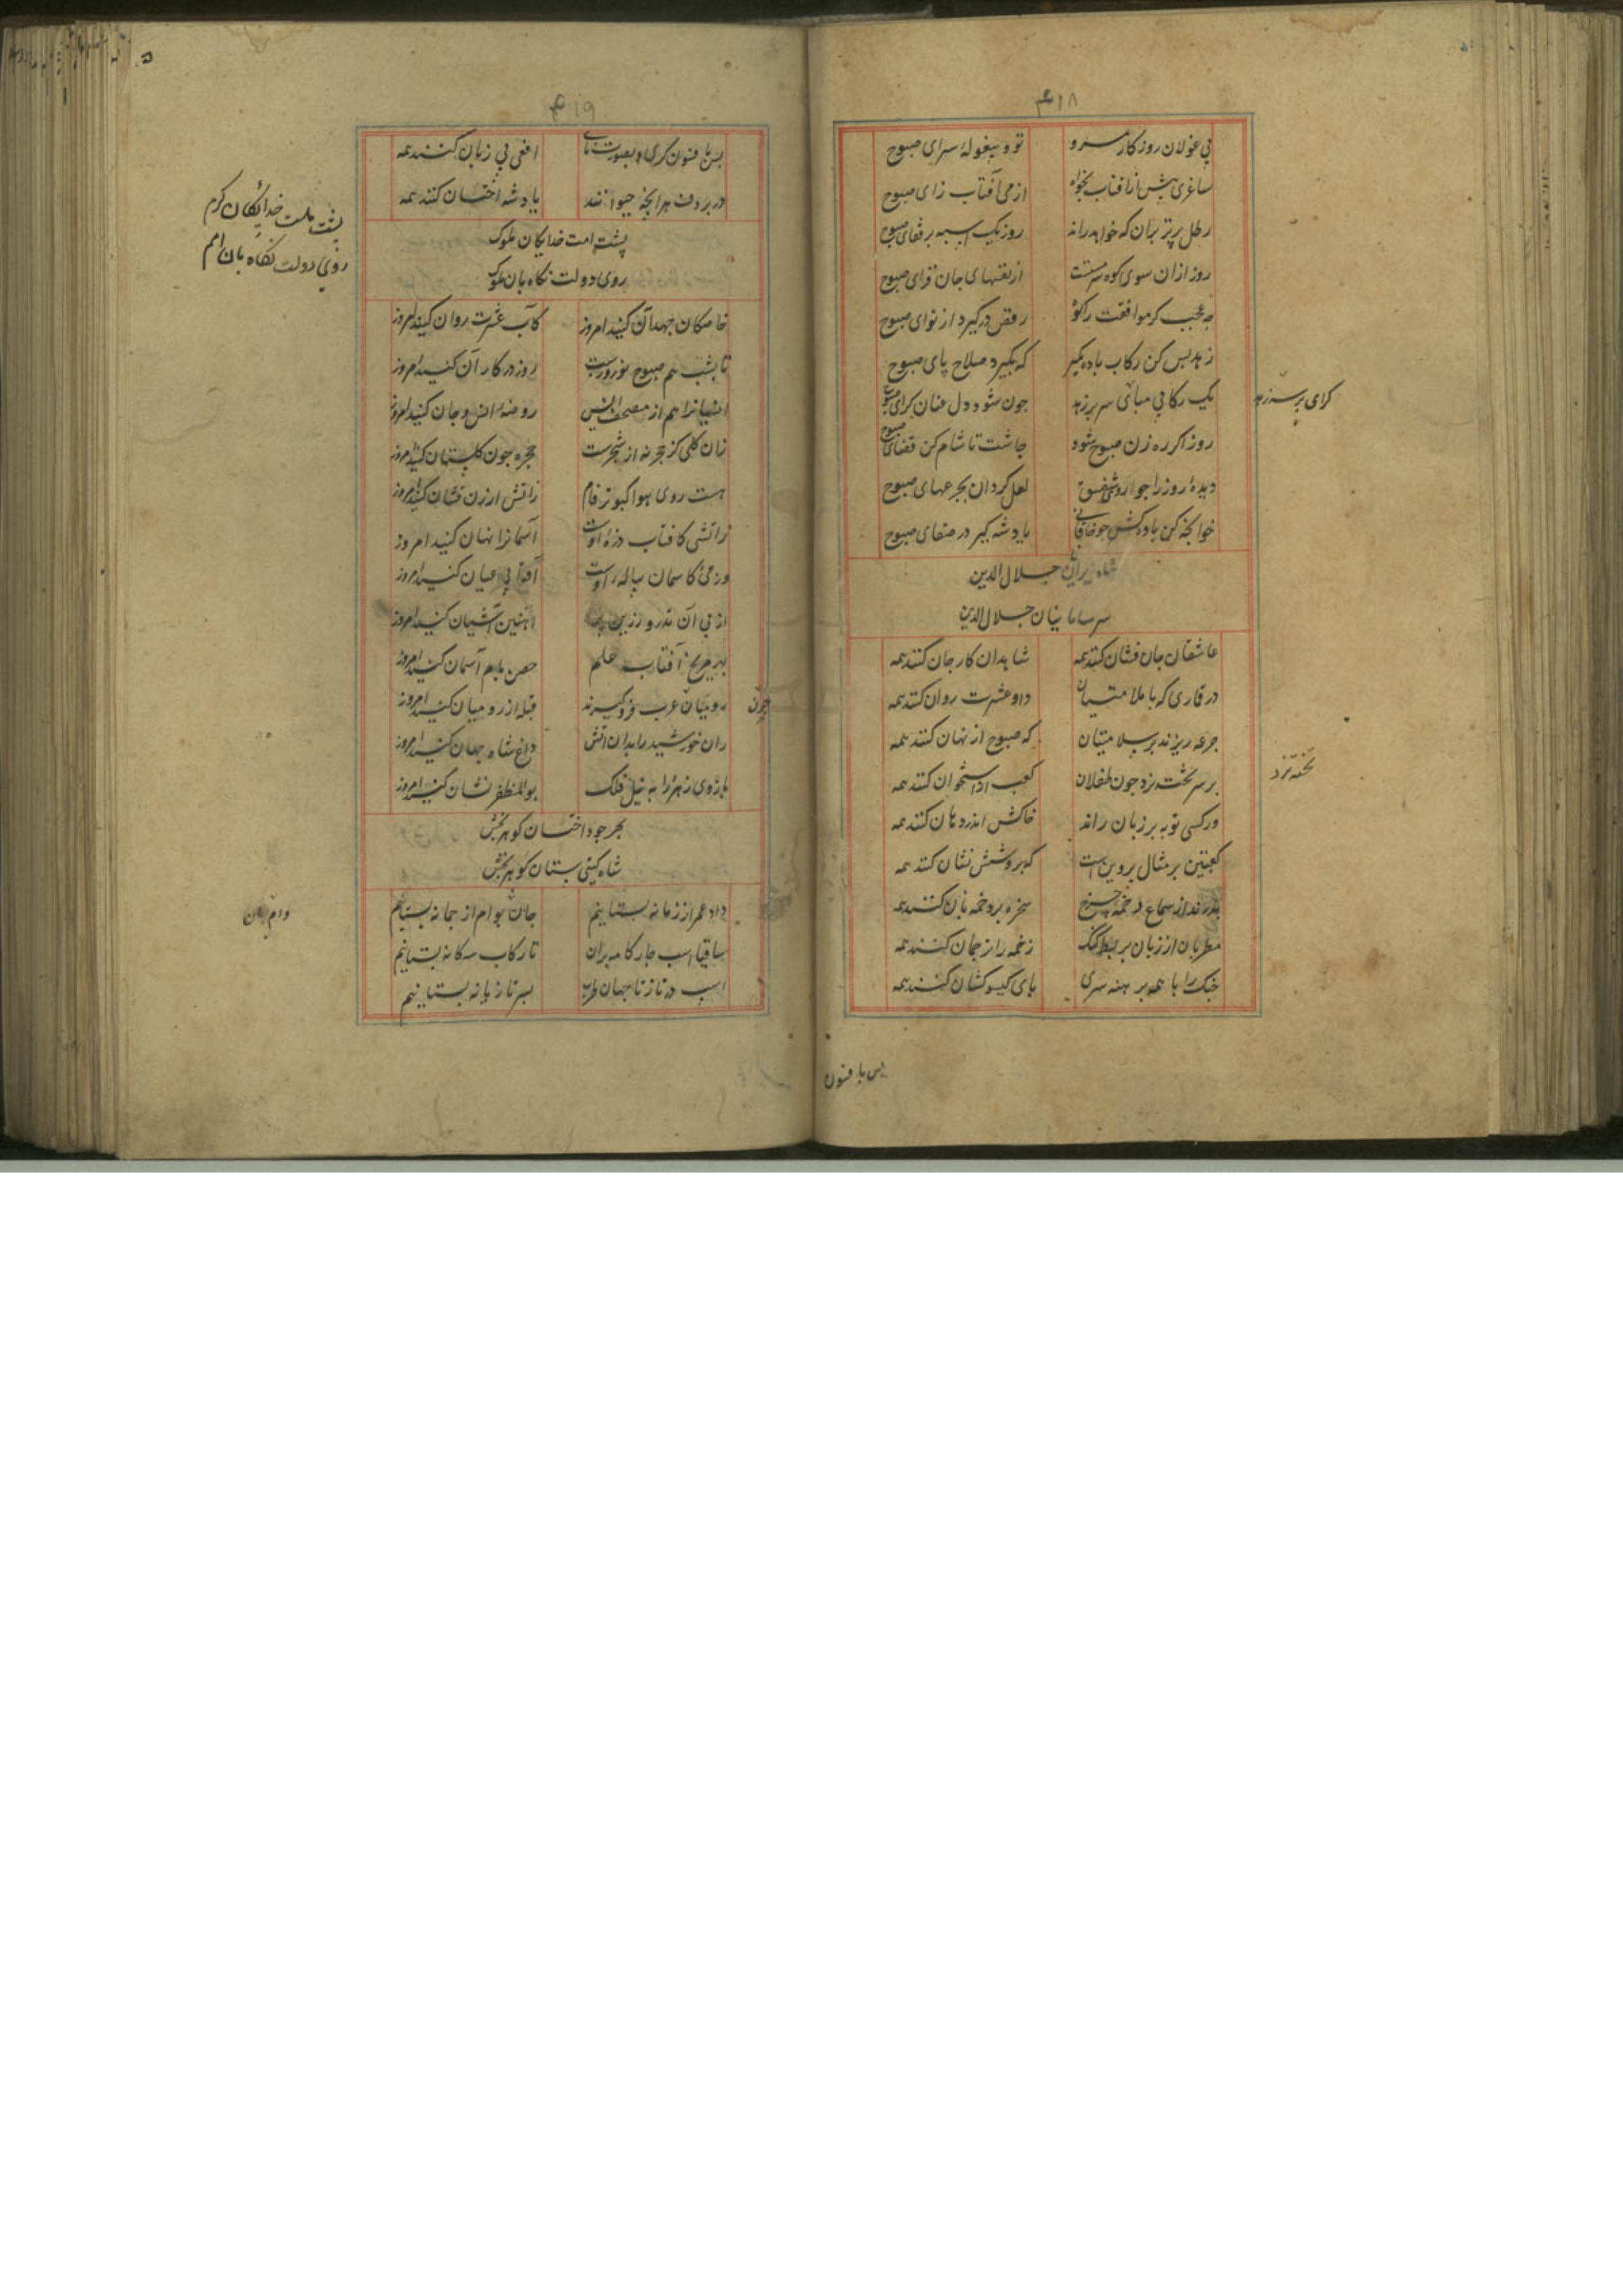 ۴۱۸
پی غولان روزگار مرو تو و بیغولهٔ سرای صبوح
ساغری پیش از افتاب بخواه از می آفتاب زای صبوح
رطل پرتر بران که خواهد راند روز یک اسبه بر قفای صبوح
روز ازان سوی کوه سرمستت از نفسهای جان فزای صبوح
چه عجب گر موافقت را کوه رقص درگیرد از نوای صبوح
زهد بس کن رکاب باده بگیر که بگیرد صلاح پای صبوح
یک رکابی مبای سر بر زهد جون شود دل عنان گرای صبوح
گرای بر سر زهد
روز اگر ره زن صبوح شود جاشت تا شام کن قضای صبوح
دیدهٔ روز را جو روی شفق لعل گردان بجرعهای صبوح
خوانجه کن باده کش جو خاقانی یاد شه گیر در صفای صبوح
شاه ایران جلال الدین
سر سامانیان جلال الدین
عاشقان جان فشان کنند همه شاهدان کار جان کنند همه
در قماری که با ملامتیان داو عشرت روان کنند همه
جرعه ریزند بر سلامتیان که صبوح از نهان کنند همه
بر سر تخت نرد جون طفلان کعب از استخوان کنند همه
تخته نرد
ور کسی توبه بر زبان راند خاکش اندر دهان کنند همه
کعبتین بر مثال پروین است که بر و شش نشان کنند همه
از سماع زخمه چرخ سخره بر دخمه بان کنند همه
مطربان از زبان بربط گنگ زخمه را ترجمان کنند همه
چنگ را با همه برهنه سری پای گیسو کشان کنند همه
پس با فنون
۴۱۹
پس با فنون گری و بصورت نای افعی بی زبان کنند همه
در بردف هر آنچه حیوانند یاد شه اخستان کنند همه
پشت امت خدایگان ملوک
روی دولت نگاه بان ملوک
پشت ملت خدایگان کرم
روی دولت نگاه بان امم
خاصگان جهد آن کنید امروز کاب عشرت روان کنید امروز
تا بشب هم صبوح نوروزست روز در کار آن کنید امروز
هم از مصحف انس روضهٔ انس و جان کنید امروز
زان گلی کز حجر نه از شجرست حجره جون گلستان کنید امروز
هست روی هوا کبوتر فام زاتش ارزن فشان کنید امروز
زاتشی کافتاب ذرهٔ اوست آسمانرا نهان کنید امروز
وز میی کاسمان پیالهٔ اوست آفتابی عیان کنید امروز
از پی آن تذرو زرین پر اهنین آشیان کنید امروز
بهر مریخ آفتاب علم حصن بام آسمان کنید امروز
رومیان عرب فرو گیرند قبله از رومیان کنید امروز
چون
ران خورشید را بدان اتش داغ شاه جهان کنید امروز
بازوی زهره را به نیل فلک بوالمظفر نشان کنید امروز
بحر جود اخستان گوهر بخش
شاه گیتی ستان گوهر بخش
داد عمر از زمانه بستانیم جان بوام از جمانه بستانیم
وام جان
ساقیا اسب جار گامه بران تا رکاب سه گانه بستانیم
اسب در تاز تا جهان طرب بسر تازیانه بستانیم